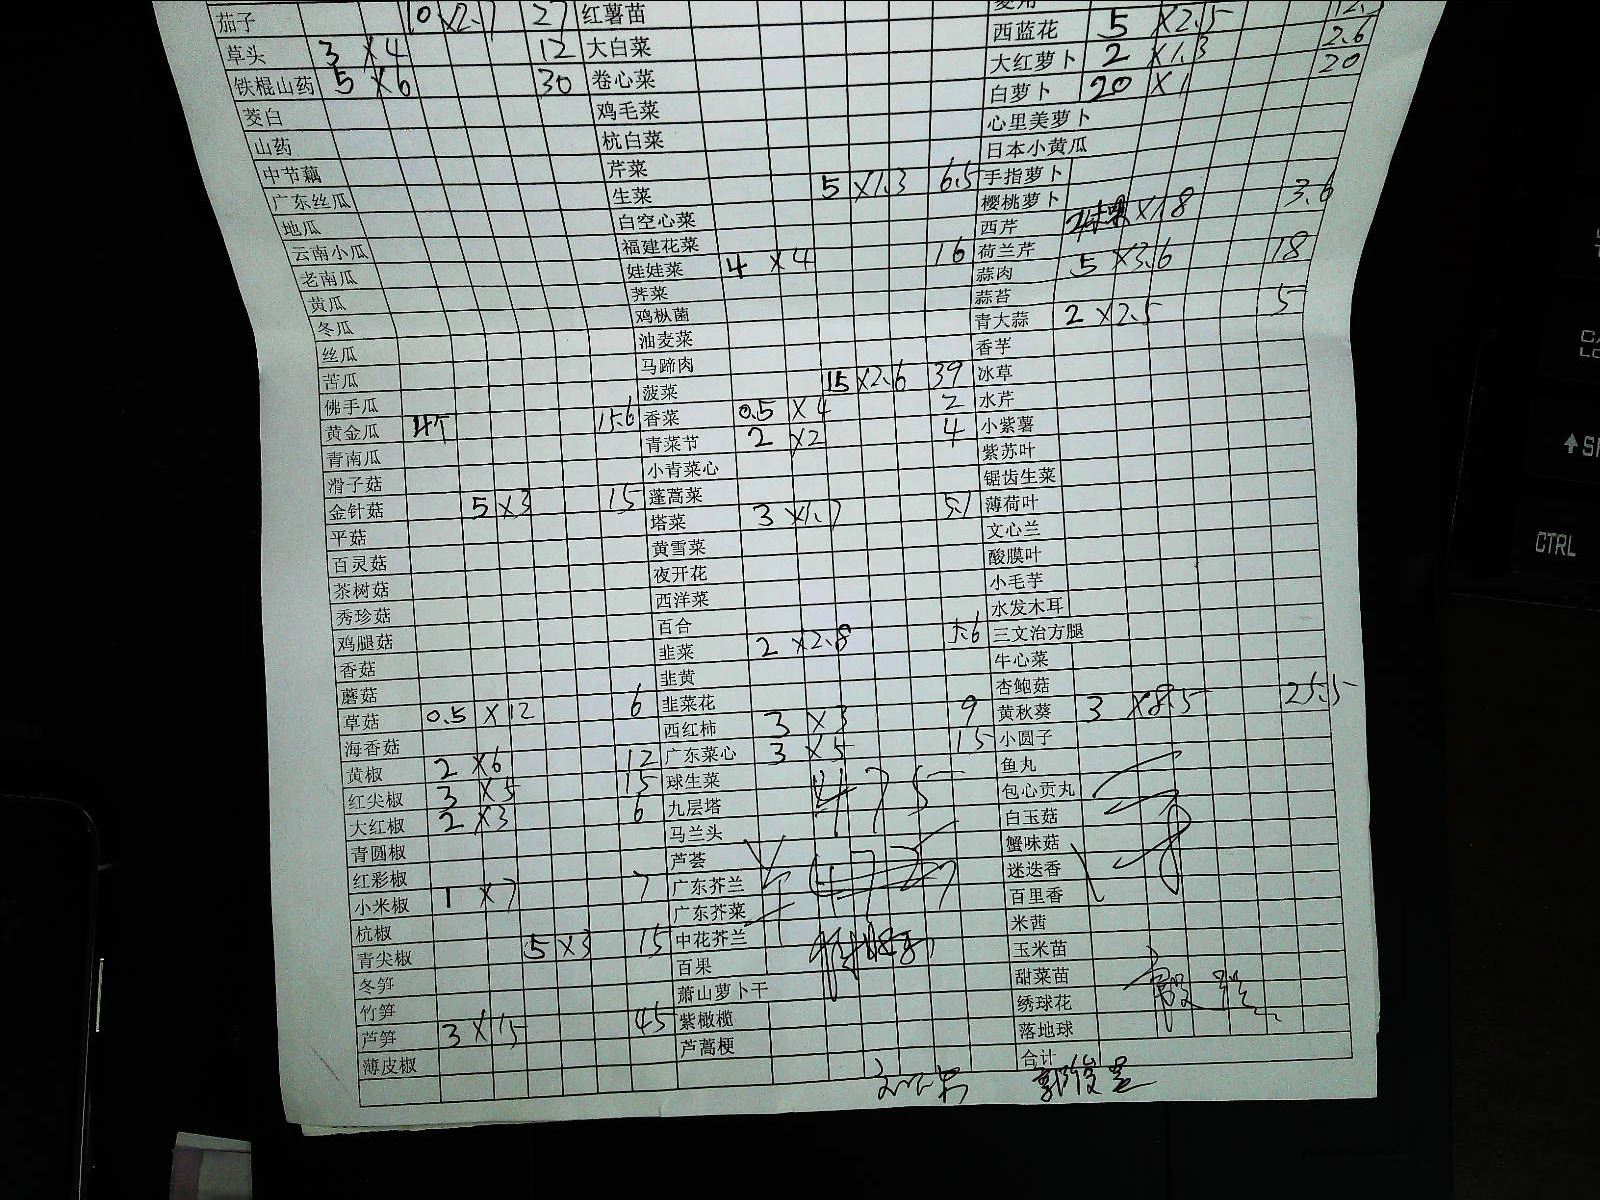 茄子 10 ×2.7 27 红薯苗
西蓝花 5 ×2.5 12.5
草头 3 ×4 12 大白菜
大红萝卜 2 ×1.3 2.6
铁棍山药 5 ×6 30 卷心菜
白萝卜 20 ×1 20
茭白 鸡毛菜 心里美萝卜
山药 杭白菜 日本小黄瓜
中节藕 芹菜 手指萝卜
广东丝瓜 生菜 5 ×1.3 6.5 樱桃萝卜
地瓜 白空心菜 西芹 ×1.8 3.6
云南小瓜 福建花菜 荷兰芹
老南瓜 娃娃菜 4 ×4 16 蒜肉 5 ×3.6 18
黄瓜 荠菜 蒜苔
冬瓜 鸡枞菌 青大蒜 2 ×2.5 5
丝瓜 油麦菜 香芋
苦瓜 马蹄肉 冰草
佛手瓜 菠菜 15 ×2.6 39 水芹
黄金瓜 4个 15.6 香菜 0.5 ×4 2 小紫薯
青南瓜 青菜节 2 ×2 4 紫苏叶
滑子菇 小青菜心 锯齿生菜
金针菇 5 ×3 15 蓬蒿菜 薄荷叶
平菇 塔菜 3 ×1.7 5.1 文心兰
百灵菇 黄雪菜 酸膜叶
茶树菇 夜开花 小毛芋
秀珍菇 西洋菜 水发木耳
鸡腿菇 百合 三文治方腿
香菇 韭菜 2 ×2.8 5.6 牛心菜
蘑菇 韭黄 杏鲍菇
草菇 0.5 ×12 6 韭菜花 黄秋葵 3 ×8.5 25.5
海香菇 西红柿 3 ×3 9 小圆子
黄椒 2 ×6 12 广东菜心 3 ×5 15 鱼丸
红尖椒 3 ×5 15 球生菜 475 包心贡丸
大红椒 2 ×3 6 九层塔 白玉菇
青圆椒 马兰头 蟹味菇
红彩椒 芦荟 迷迭香
小米椒 1 ×7 7 广东芥兰 百里香
杭椒 广东芥菜 米茜
青尖椒 5 ×3 15 中花芥兰 玉米苗
冬笋 百果 甜菜苗
竹笋 萧山萝卜干 绣球花
芦笋 3 ×15 45 紫橄榄 落地球
薄皮椒 芦蒿梗 合计